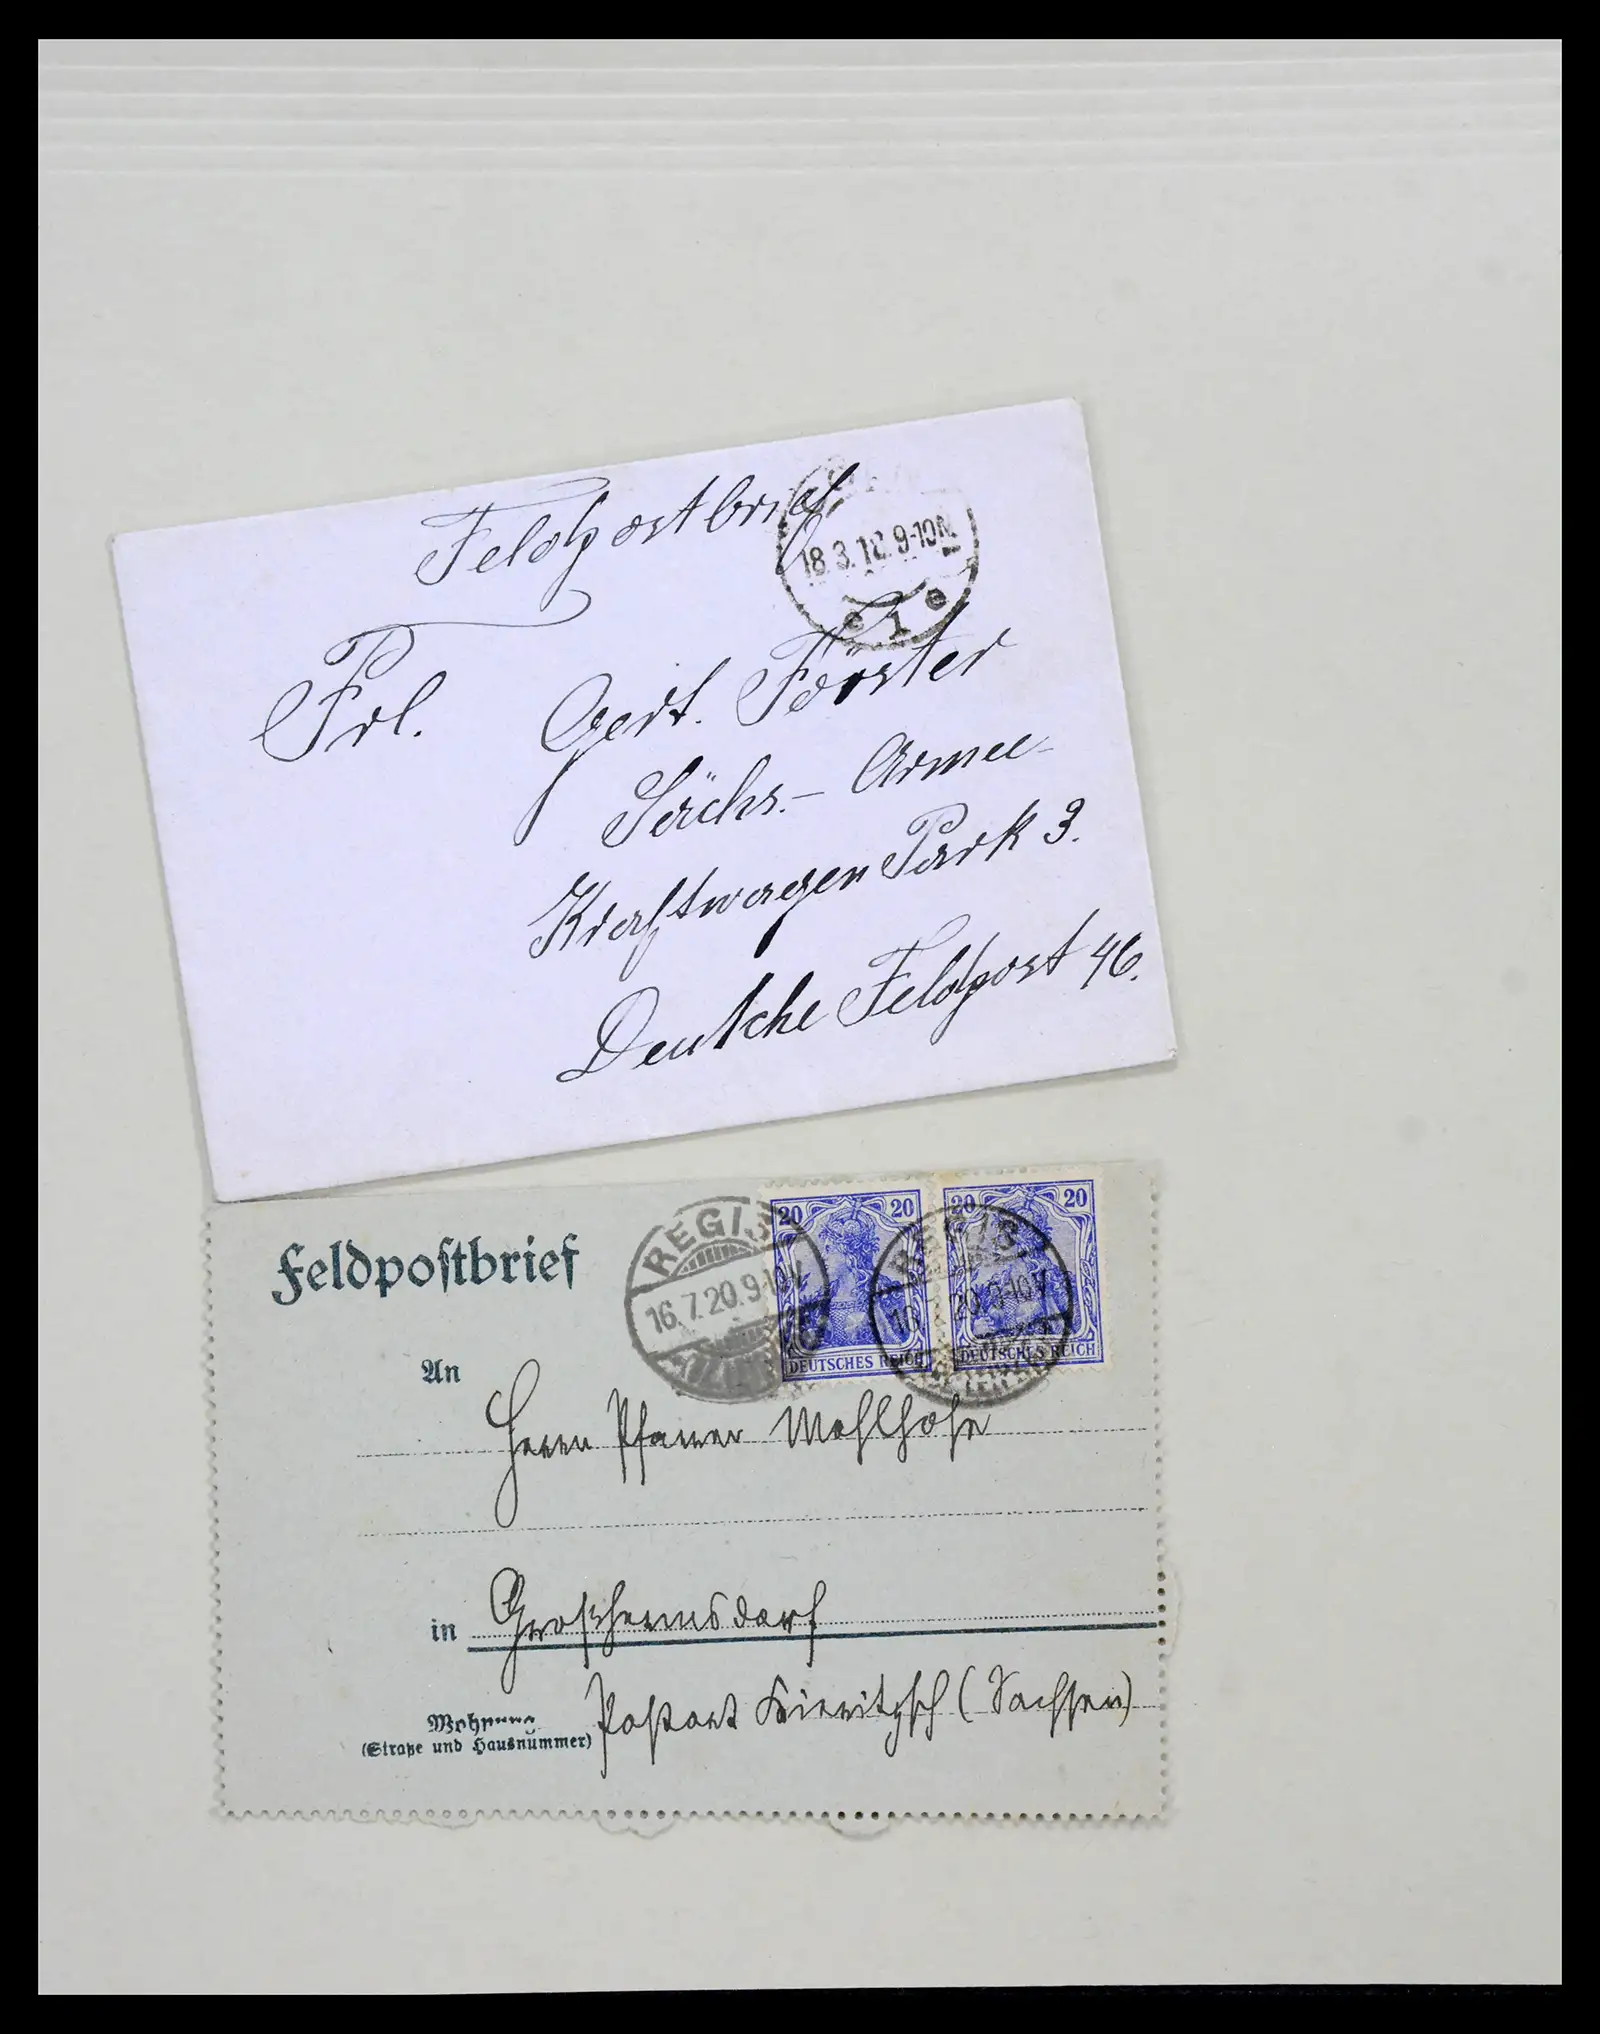 Feldpostbrief
18.3.18.9-10N
e 1 e
Frl. Gert. Förster
Sächs.- Armee-
Kraftwagen Park 3.
Deutsche Feldpost 46.
Feldpostbrief
REGIS
16.7.20.9-10V
20 20
DEUTSCHES REICH
20 20
DEUTSCHES REICH
REGIS
20.9-10V
An
Herrn Pfarrer
in Großhermsdorf
Wohnung
(Straße und Hausnummer)
Postort Kieritzsch (Sachsen)